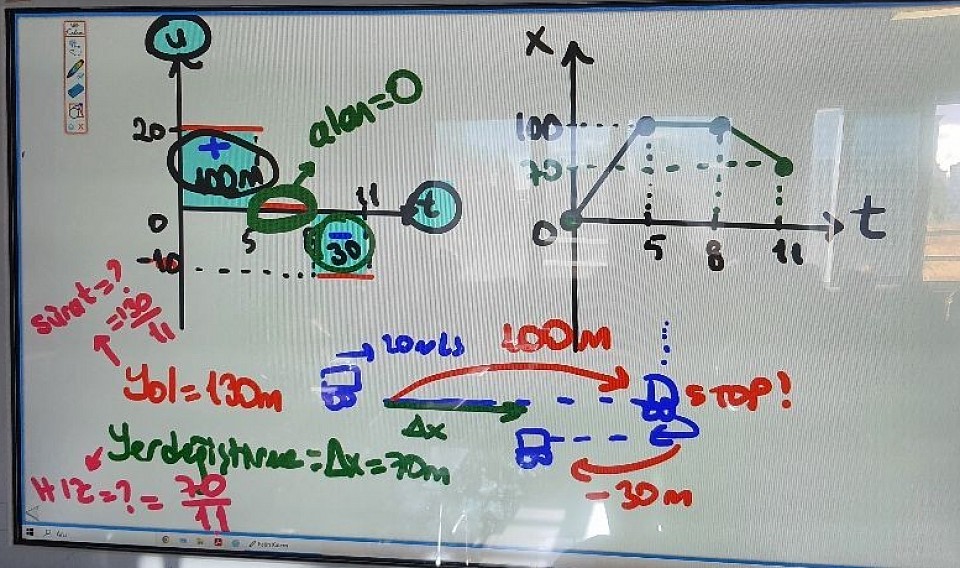 υ
20
+
100m
alan=0
0
5
8
11
t
-10
-
30
x
100
70
0
5
8
11
t
Sürat=?
=130/11
Yol=130m
Yerdeğiştirme=Δx=70m
Hız=?=70/11
20m/s
100m
STOP!
Δx
-30m